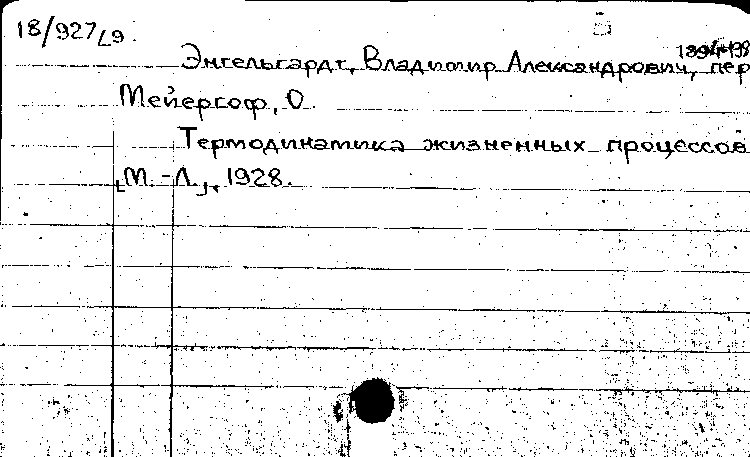 18/927
Энгельгардт, Владимир Александрович, пер
Мейергоф, О.
Термодинамика жизненных процессов
[М.-Л.], 1928.